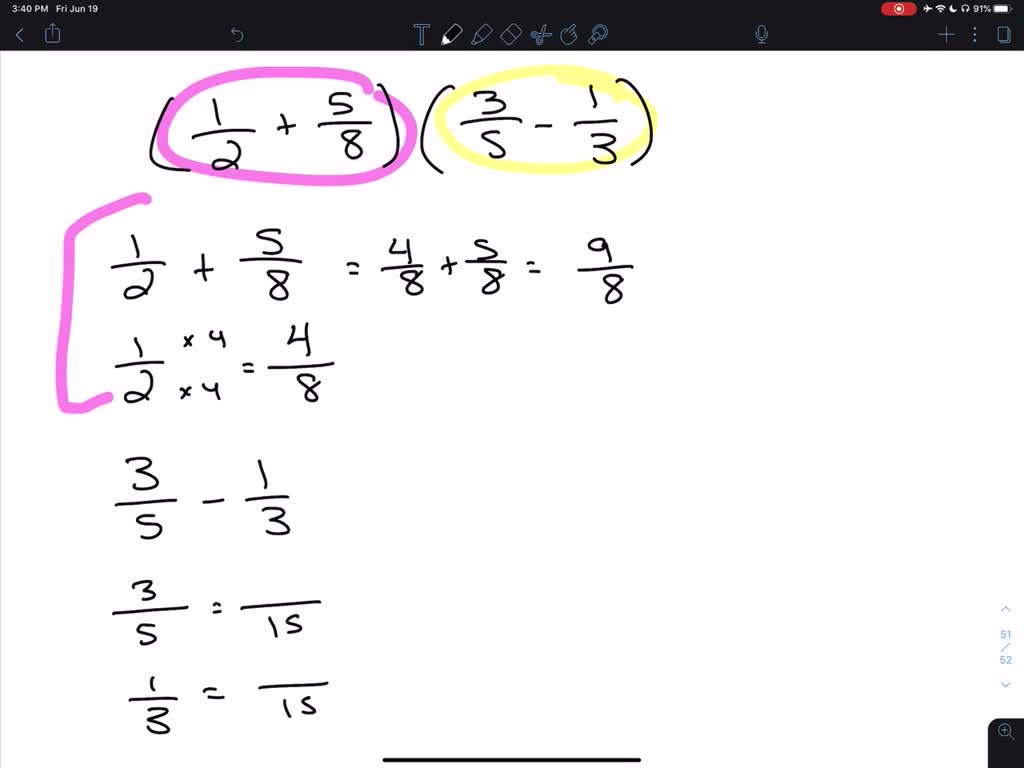 3:40 PM Fri Jun 19
91%
(1/2 + 5/8) (3/5 - 1/3)
1/2 + 5/8 = 4/8 + 5/8 = 9/8
1/2 × 4 / × 4 = 4/8
3/5 - 1/3
3/5 = /15
1/3 = /15
51
/
52